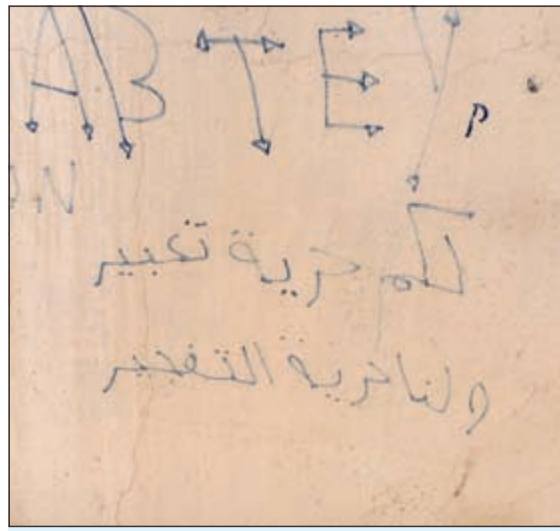 ABTEY
P
N
لكم حرية تعبير
ولنا حرية التفجير